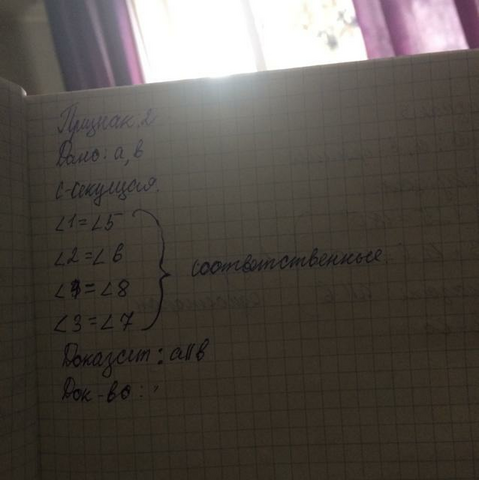 Признак 2
Дано: a, b
c-секущая.
∠1=∠5
∠2=∠6
∠4=∠8
∠3=∠7
соответственные
Доказат: a||b
Док-во: